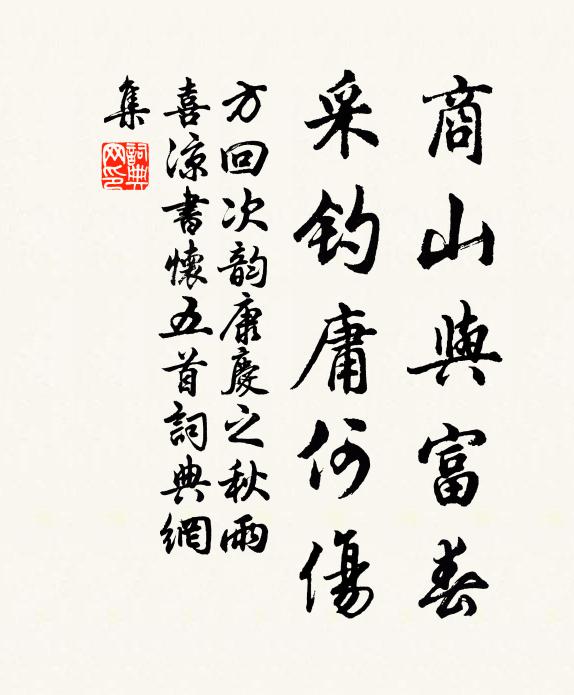 商山與富春
采釣庸何傷
方回次韵康慶之秋雨
喜涼書懷五首詞典網
集
詞典
网印